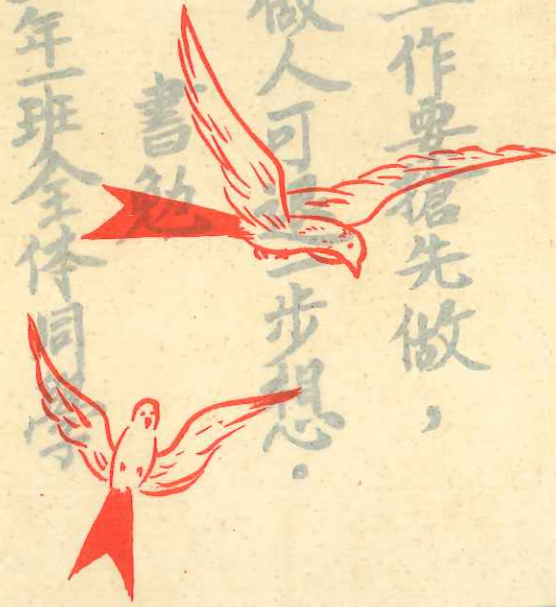 作要搶先做，
做人可退一步想．
書勉
年一班全体同學